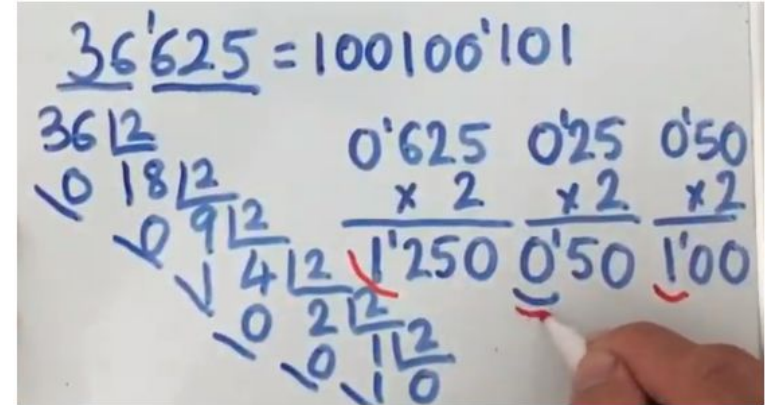 36'625 = 100100'101
36 2
0 18 2
0 9 2
1 4 2
0 2 2
0 1 2
1 0
0'625 0'25 0'50
x 2 x 2 x 2
1'250 0'50 1'00